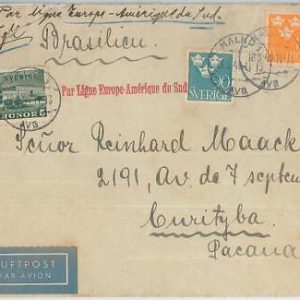 Par Ligne Europe-Amérique du Sud.
Brasilien
SVERIGE
KRONOR 5
Par Ligne Europe-Amérique du Sud
90
SVERIGE
MALMÖ
AVG
Señor Reinhard Maack
2191, Av. de 7 septem
Curityba
Pacana
LUFTPOST
PAR AVION